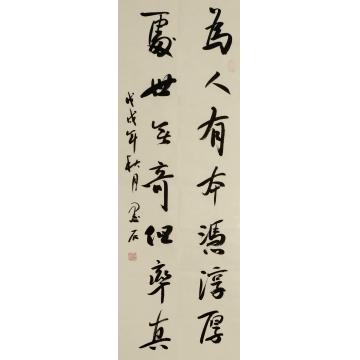 為人有本憑淳厚
處世無奇但率真
戊戌年秋月 墨石